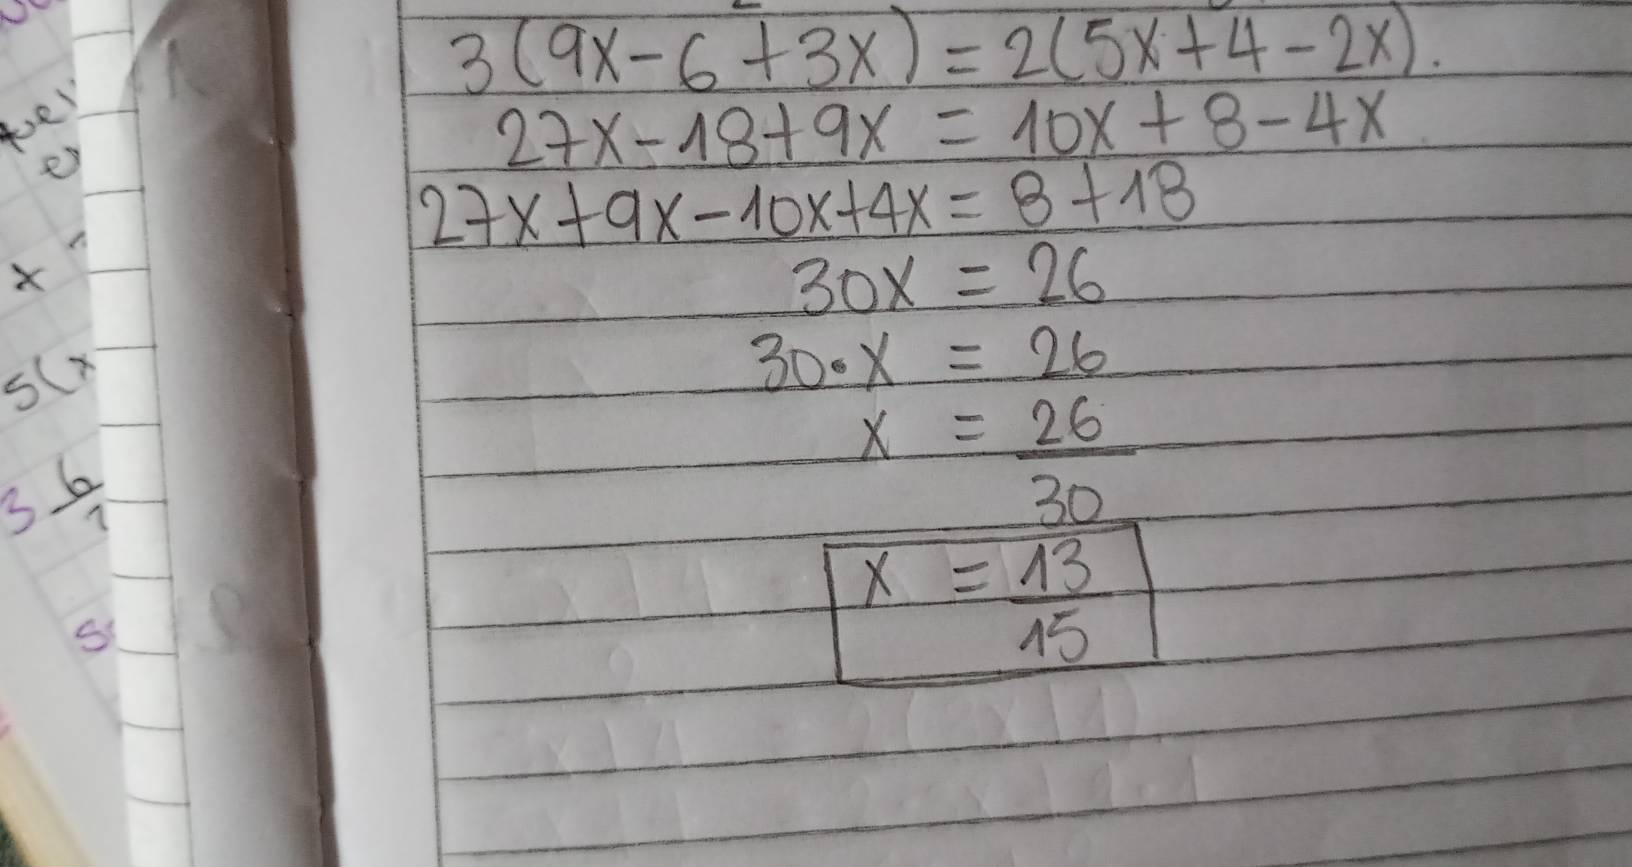 3(9x-6+3x)=2(5x+4-2x).
27x-18+9x=10x+8-4x
27x+9x-10x+4x=8+18
30x=26
30·x=26
x=26
30
x=13
15
x
5(x
3 6
5